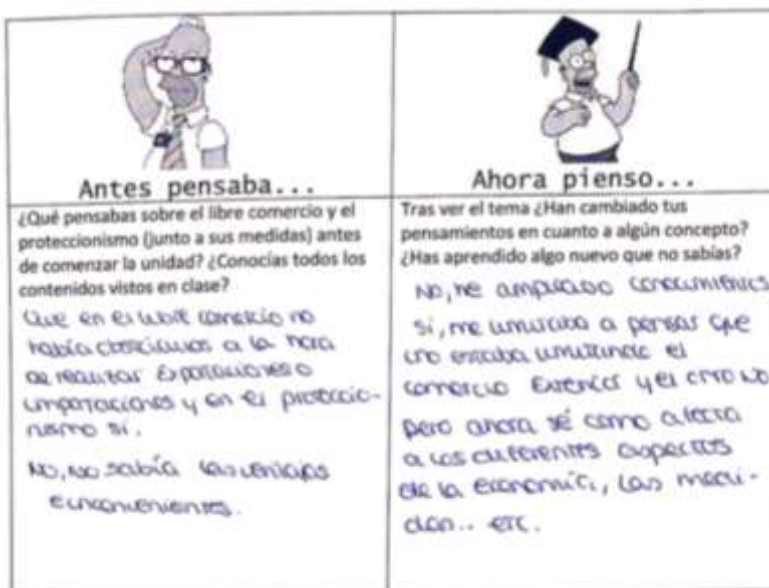 Antes pensaba...
¿Qué pensabas sobre el libre comercio y el
proteccionismo (junto a sus medidas) antes
de comenzar la unidad? ¿Conocías todos los
contenidos vistos en clase?
Que en el libre comercio no
había obstáculos a la hora
de realizar exportaciones o
importaciones y en el proteccio-
nismo si.
No, no sabía las ventajas
e inconvenientes.
Ahora pienso...
Tras ver el tema ¿Han cambiado tus
pensamientos en cuanto a algún concepto?
¿Has aprendido algo nuevo que no sabías?
No, he ampliado conocimientos
si, me limitaba a pensar que
uno estaba limitando el
comercio exterior y el otro no
pero ahora sé como afecta
a los diferentes aspectos
de la economía, las medi-
das.. etc.